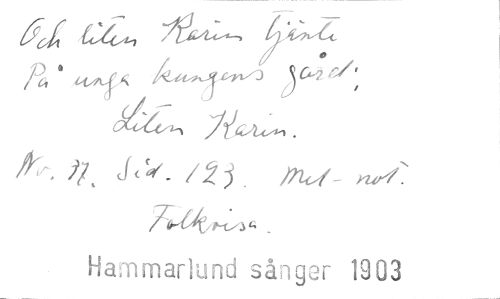 Och liten Karin tjänte
På unga kungens gård;
Liten Karin.
Nr. 37. Sid. 123. Mel-not.
Folkvisa.
Hammarlund sånger 1903